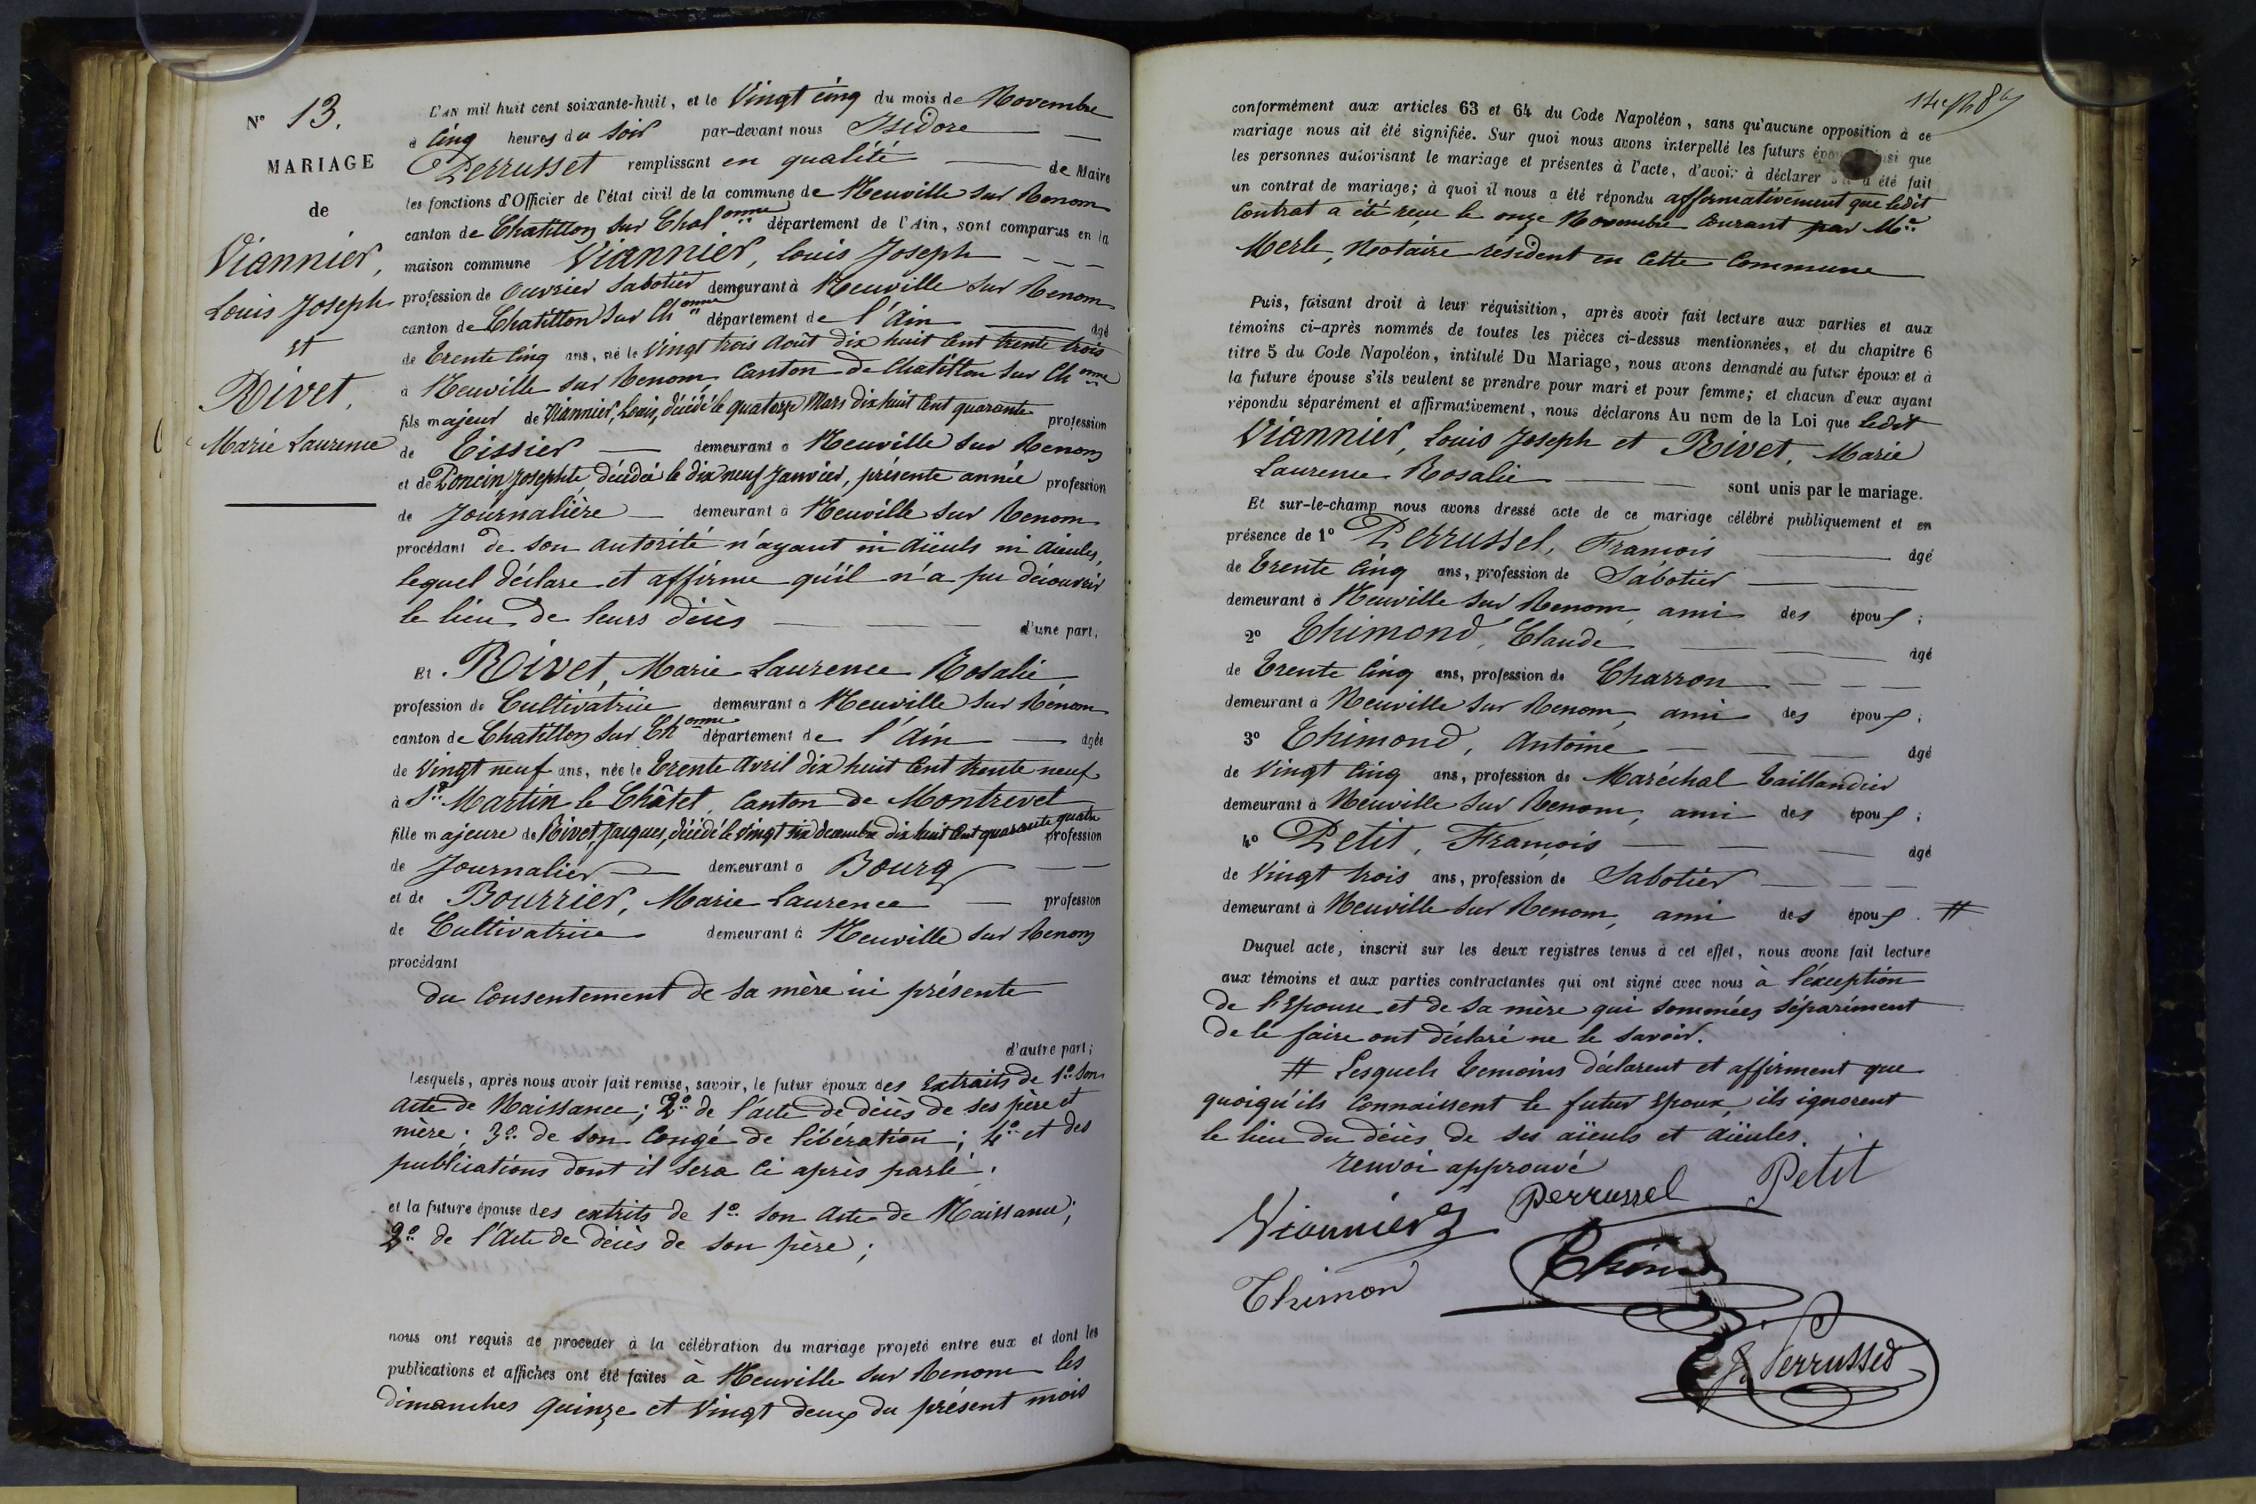 N° 13.
MARIAGE
de
Viannier,
Louis Joseph
et
Rivet,
Marie Laurence
L'AN mil huit cent soixante-huit, et le Vingt cinq du mois de Novembre
à Cinq heures du Soir par-devant nous Isidore
Perrusset remplissant en qualité de Maire
les fonctions d'Officier de l'état civil de la commune de Neuville sur Renom
canton de Chatillon sur Chalonne département de l'Ain, sont comparus en la
maison commune Viannier, Louis Joseph
profession de Ouvrier Sabotier demeurant à Neuville sur Renom
canton de Chatillon sur Chonne département de l'Ain âgé
de Trente Cinq ans, né le Vingt trois Août dix huit Cent trente trois
à Neuville sur Renom Canton de Chatillon sur Chonne
fils majeur de Viannier, Louis, décédé le quatorze Mars dix huit Cent quarente profession
de Tissier demeurant à Neuville sur Renom
et de Poncin Josephte, décédée le dix neuf Janvier, présente année profession
de Journalière demeurant à Neuville sur Renom
procédant de son autorité n'ayant ni aïeuls ni aïeules,
lequel déclare et affirme qu'il n'a pu découvrir
le lieu de leurs décès d'une part,
Et Rivet, Marie Laurence Rosalie
profession de Cultivatrice demeurant à Neuville sur Renom
canton de Chatillon sur Chonne département de l'Ain âgée
de Vingt neuf ans, née le Trente Avril dix huit Cent trente neuf
à St. Martin le Châtel Canton de Montrevel
fille majeure de Rivet, Jacques, décédé le Vingt six décembre dix huit Cent quarante quatre profession
de Journalier demeurant à Bourg
et de Bourrier, Marie Laurence profession
de Cultivatrice demeurant à Neuville sur Renom
procédant
du Consentement de sa mère ici présente
d'autre part;
Lesquels, après nous avoir fait remise, savoir, le futur époux des Extraits de 1° Son
acte de Naissance; 2° de l'acte de décès de ses père et
mère; 3° de son Congé de libération; 4° et des
publications dont il sera ci après parlé;
et la future épouse des extrits de 1° Son Acte de Naissance;
2° de l'Acte de decès de son père;
nous ont requis de procéder à la célébration du mariage projeté entre eux et dont les
publications et affiches ont été faites à Neuville sur Renom les
dimanches quinze et Vingt deux du présent mois
conformément aux articles 63 et 64 du Code Napoléon, sans qu'aucune opposition à ce
mariage nous ait été signifiée. Sur quoi nous avons interpellé les futurs époux ainsi que
les personnes autorisant le mariage et présentes à l'acte, d'avoir à déclarer s'il a été fait
un contrat de mariage; à quoi il nous a été répondu affirmativement que ledit
Contrat a été reçu le onze Novembre Courant par Me
Merle, Notaire résident en Cette Commune
Puis, faisant droit à leur réquisition, après avoir fait lecture aux parties et aux
témoins ci-après nommés de toutes les pièces ci-dessus mentionnées, et du chapitre 6
titre 5 du Code Napoléon, intitulé Du Mariage, nous avons demandé au futur époux et à
la future épouse s'ils veulent se prendre pour mari et pour femme; et chacun d'eux ayant
répondu séparément et affirmativement, nous déclarons Au nom de la Loi que ledit
Viannier, Louis Joseph et Rivet, Marie
Laurence Rosalie sont unis par le mariage.
Et sur-le-champ nous avons dressé acte de ce mariage célébré publiquement et en
présence de 1° Perrussel, François âgé
de Trente Cinq ans, profession de Sabotier
demeurant à Neuville sur Renom, ami des époux;
2° Thimond, Claude âgé
de Trente Cinq ans, profession de Charron
demeurant à Neuville sur Renom, ami des époux;
3° Thimond, Antoine âgé
de Vingt Cinq ans, profession de Maréchal Taillandier
demeurant à Neuville sur Renom, ami des époux;
4° Petit, François âgé
de Vingt trois ans, profession de Sabotier
demeurant à Neuville sur Renom, ami des époux. #
Duquel acte, inscrit sur les deux registres tenus à cet effet, nous avons fait lecture
aux témoins et aux parties contractantes qui ont signé avec nous à l'exception
de l'Epouse et de sa mère qui sommées séparément
de le faire ont déclaré ne le savoir.
# Lesquels temoins déclarent et affirment que
quoiqu'ils Connaissent le futur Epoux, ils ignorent
le lieu du décès de ses aïeuls et aïeules.
renvoi approuvé
Perrussel Petit
Vionnier
Thimon
J. Perrusset